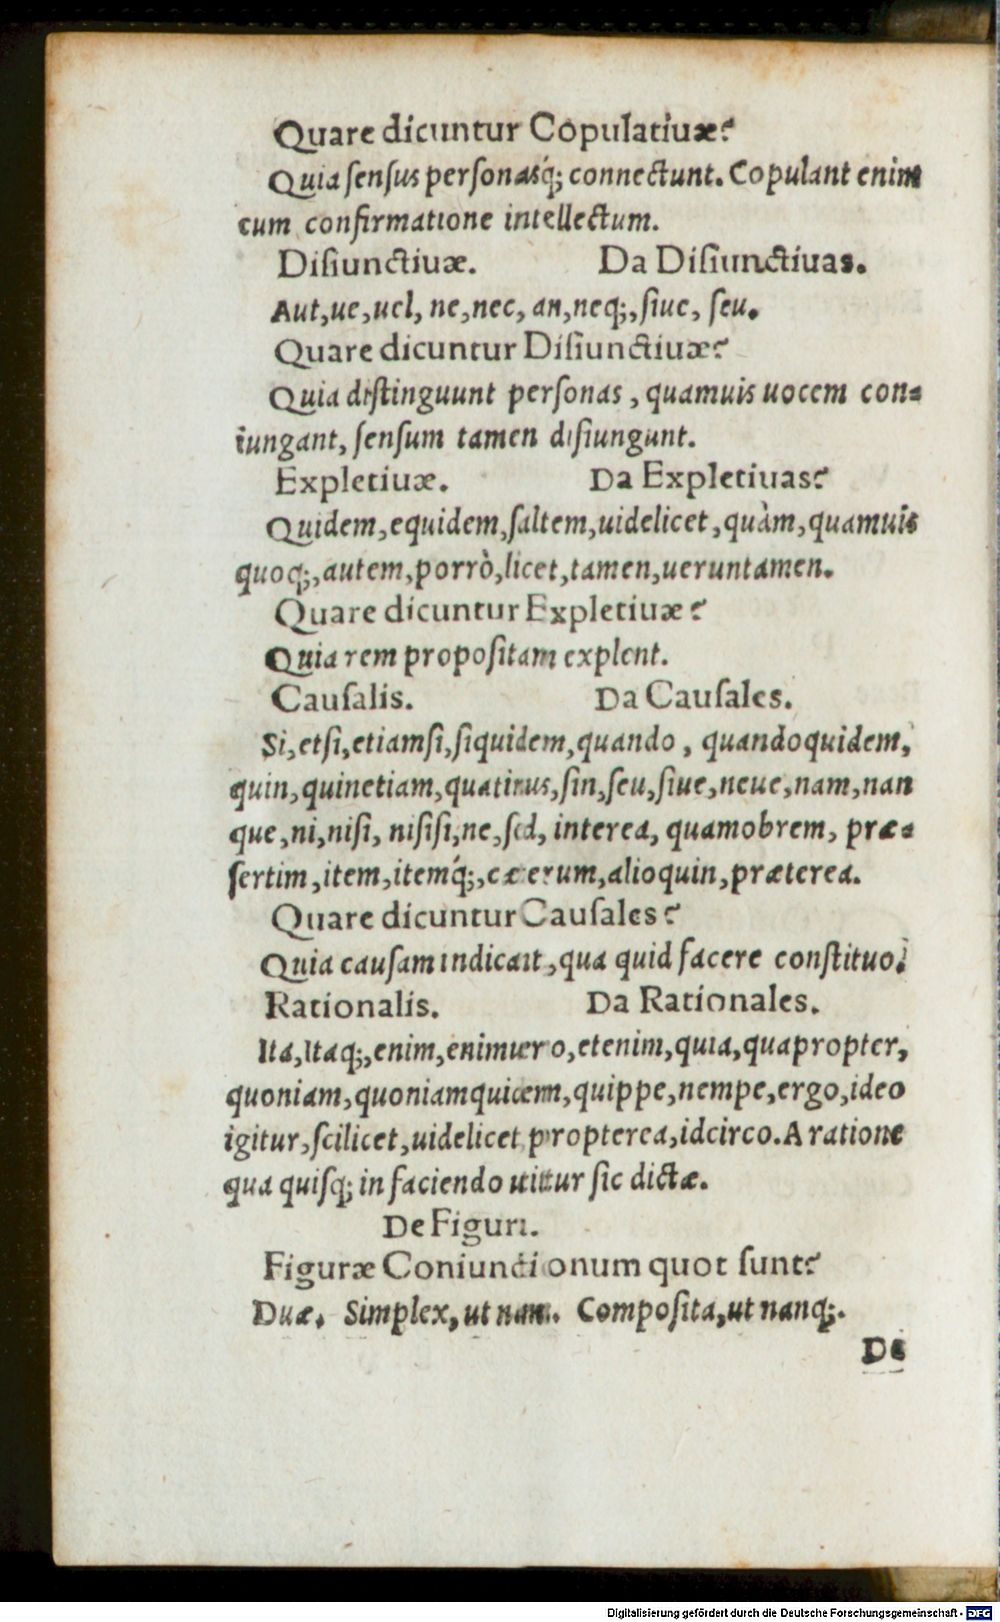 Quare dicuntur Copulatiuæ?
Quia sensus personasq́; connectunt. Copulant enim
cum confirmatione intellectum.
Disiunctiuæ. Da Disiunctiuas.
Aut, ue, uel, ne, nec, an, neq;, siue, seu.
Quare dicuntur Disiunctiuæ?
Quia distinguunt personas, quamuis uocem con-
iungant, sensum tamen disiungunt.
Expletiuæ. Da Expletiuas?
Quidem, equidem, saltem, uidelicet, quàm, quamuis
quoq;, autem, porrò, licet, tamen, ueruntamen.
Quare dicuntur Expletiuæ?
Quia rem propositam explent.
Causalis. Da Causales.
Si, etsi, etiamsi, siquidem, quando, quandoquidem,
quin, quinetiam, quatinus, sin, seu, siue, neue, nam, nan
que, ni, nisi, nisisi, ne, sed, interea, quamobrem, præ-
sertim, item, itemq́;, cæterum, alioquin, præterea.
Quare dicuntur Causales?
Quia causam indicant, qua quid facere constituo.
Rationalis. Da Rationales.
Ita, Itaq;, enim, enimuero, etenim, quia, quapropter,
quoniam, quoniamquidem, quippe, nempe, ergo, ideo
igitur, scilicet, uidelicet, propterea, idcirco. A ratione
qua quisq; in faciendo utitur sic dictæ.
De Figuri.
Figuræ Coniunctionum quot sunt?
Duæ. Simplex, ut nam. Composita, ut nanq;.
De
Digitalisierung gefördert durch die Deutsche Forschungsgemeinschaft - DFG